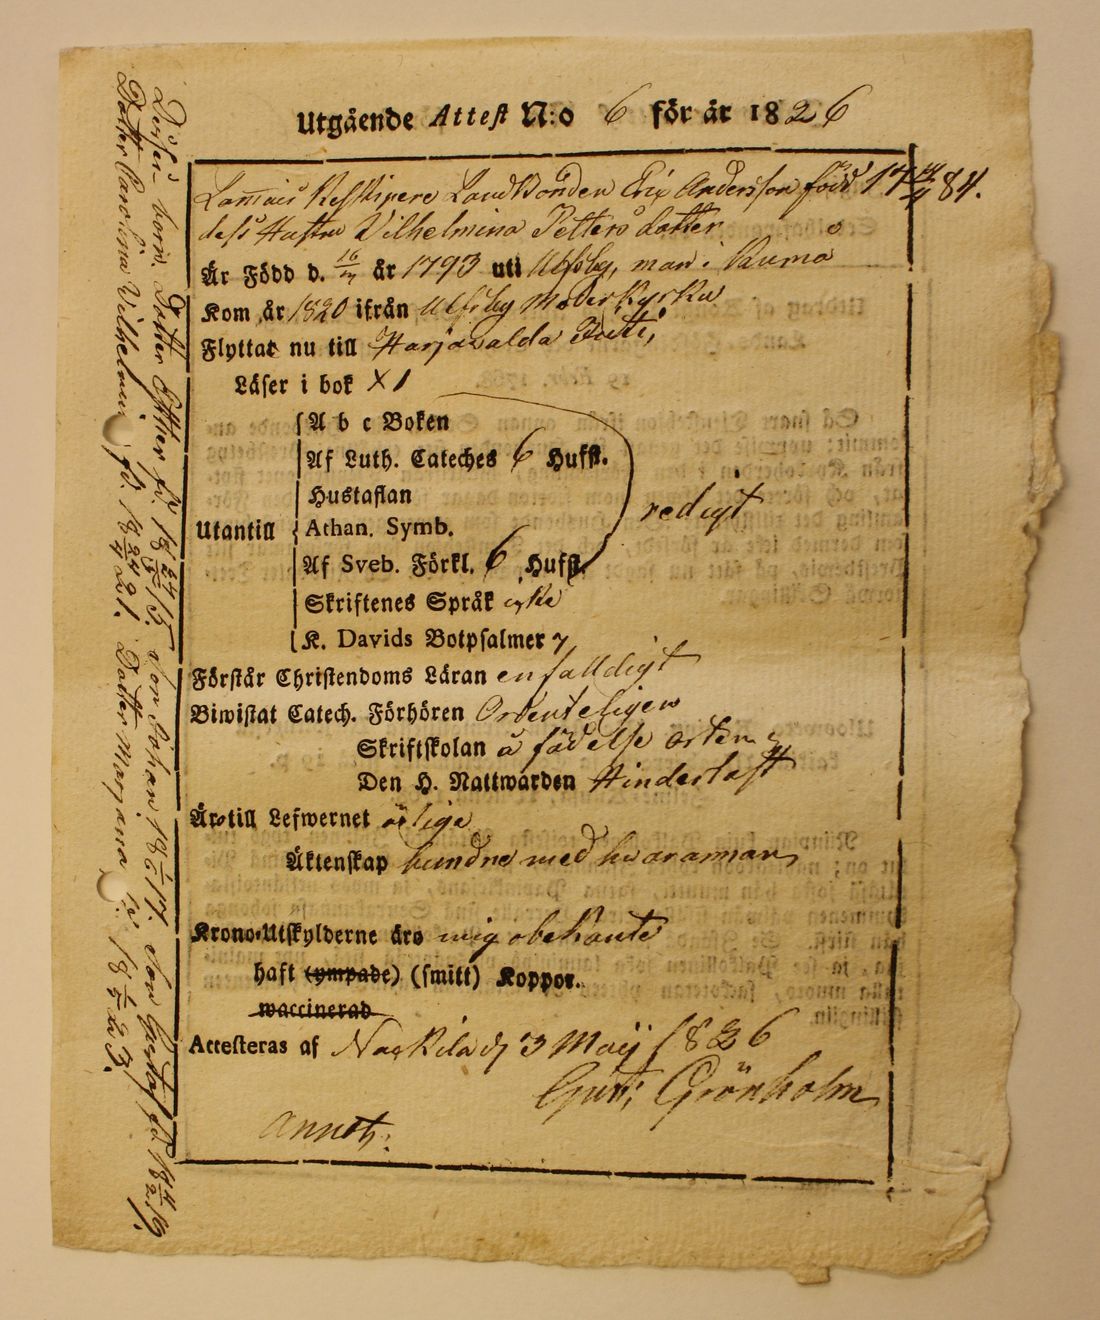 Utgående Attest N:o 6 för år 1826
Landbonden Eric Andersson född 17 84.
dess Hustru Vilhelmina Petters dotter
Är Född d. 16/7 år 1793 uti Ulfsby, man i Kumo
Kom år 1820 ifrån Ulfsby Moderkyrka
Flyttat nu till Harjavalda
Läser i bok X 1
A b c Boken
Af Luth. Cateches 6 Hufst.
Hustaflan
Utantill Athan. Symb. redigt
Af Sveb. Förkl. 6 Hufst.
Skriftenes Språk icke
K. Davids Botpsalmer 7
Förstår Christendoms Läran enfalldigt
Biwistat Catech. Förhören Ordenteligen
Skriftskolan å födelse orten
Den H. Nattwarden Hinderlöst
Äro till Lefwernet ärliga
Äktenskap bundne med hvarannan
Krono-Utskylderne äro mig obekante
haft (ympade) (smitt) Koppor.
waccinerad
Attesteras af Nackila d 3 Maij 1826
Gust. Grönholm
Dessas barn. Dotter Esther fö. 18 24/3 15. Son Johan 18 1/6 17. Son Gustaf fö. 18 4/2 19.
Dotter Carolina Vilhelmin fö. 18 24/4 21. Dotter Marjana fö. 18 5/5 23.